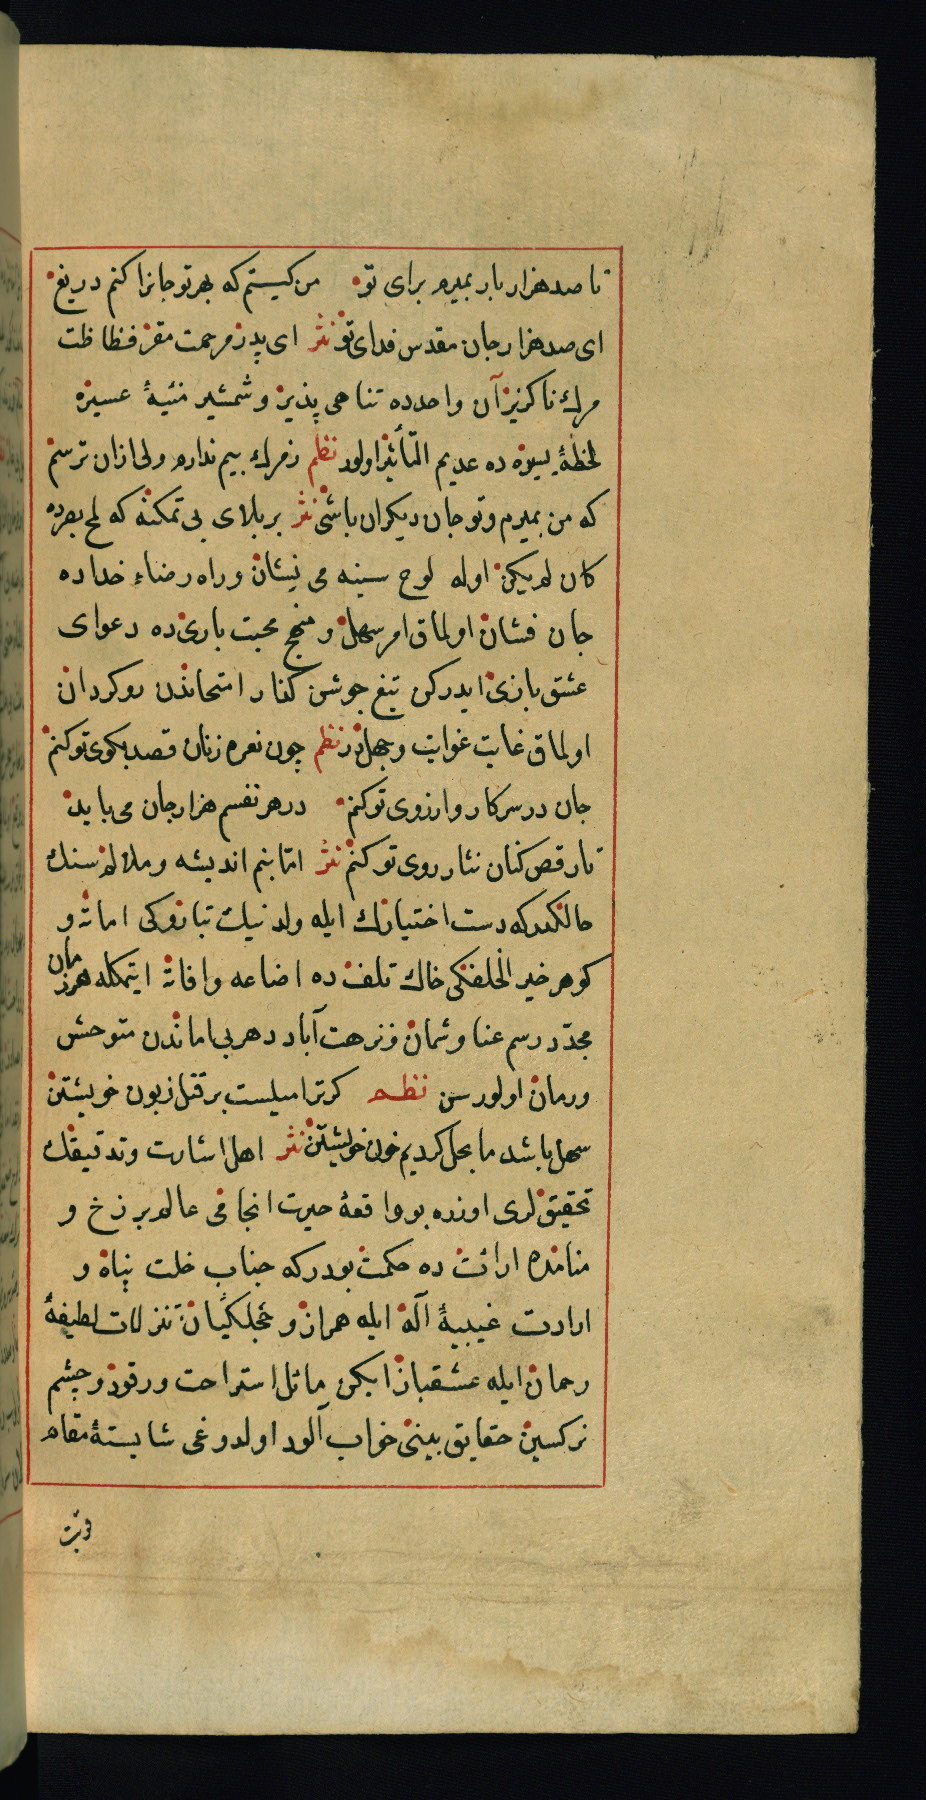 تا صد هزار بار بمیرم برای تو من کیستم که بهر تو جانرا کنم دریغ
ای صد هزار جان مقدس فدای تو نثر ای پدر مرحمت مقر فظاظت
مرك ناكزیر آن واحدده تناهی پذیر و شمشیر منیهٔ عسیر
لحظهٔ یسیره ده عدیم التأثیر اولور نظم ز مرك بیم ندارم ولی ازان ترسم
که من بمیرم و تو جان دیکران باشی نثر بر بلای بی تمکنه که لمح بصرده
کان لم یکن اوله لوح سینه می نیشان و راه رضاء خداده
جان فشان اولماق امر سهل و منهج محبت باری ده دعوای
عشق بازی ایدرکن تیغ جوشن کنار امتحاندن روکردان
اولماق غایت غوایت و جهلدر نظم چون نعره زنان قصد بکوی تو کنم
جان در سر کار و ارزوی تو کنم در هر نفسم هزار جان می باید
تا رقص کنان نثار روی تو کنم نثر اما بنم اندیشه و ملالم سنك
حالنکدر که دست اختیارك ایله ولد نیك تبارکی اماته و
کوهر خیر الخلفکی خاك تلف ده اضاعه و افاته ایتمکله هر زمان
مجدد رسم عنا و شمان و نزهت آباد دهر بی اماندن متوحش
و رمان اولورسن نظم کر ترا میلیست بر قتل زبون خویشتن
سهل باشد ما بحل کردیم خون خویشتن نثر اهل اشارت و تدقیقك
تحقیقلری اوزره بو واقعهٔ حیرت انجافی عالم برزخ و
منامده ارائت ده حکمت بودر که جناب خلت پناه و
ارادت غیبیهٔ آله ایله همراز و تنزلات لطیفهٔ
رحمان ایله عشقباز ایکن مائل استراحت و رقود و چشم
نرکسین حقایق بینی خواب آلود اولدوغی شایستهٔ مقام